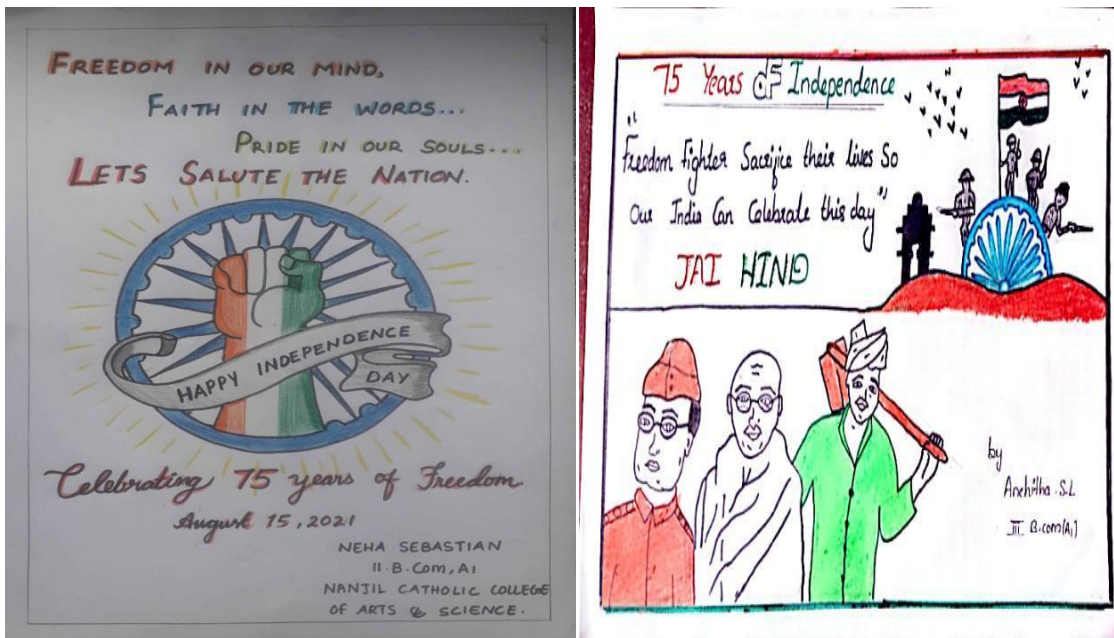 FREEDOM IN OUR MIND,
FAITH IN THE WORDS...
PRIDE IN OUR SOULS...
LETS SALUTE THE NATION.
HAPPY INDEPENDENCE
DAY
Celebrating 75 years of Freedom
August 15, 2021
NEHA SEBASTIAN
II. B.Com, A1
NANJIL CATHOLIC COLLEGE
OF ARTS & SCIENCE.
75 Years of Independence
"Freedom fighter Sacrifice their lives So
Our India Can Celebrate this day"
JAI HIND
by
S.L
III B.com(A1)